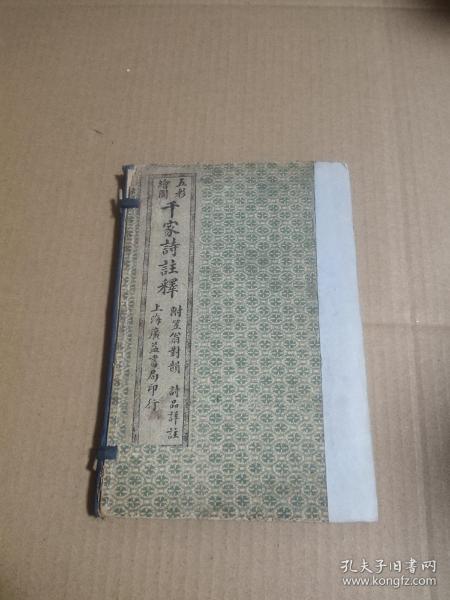 五彩
繪圖
千家詩註釋
附笠翁對韻　詩品詳註
上海廣益書局印行
孔夫子旧书网
www.kongfz.com